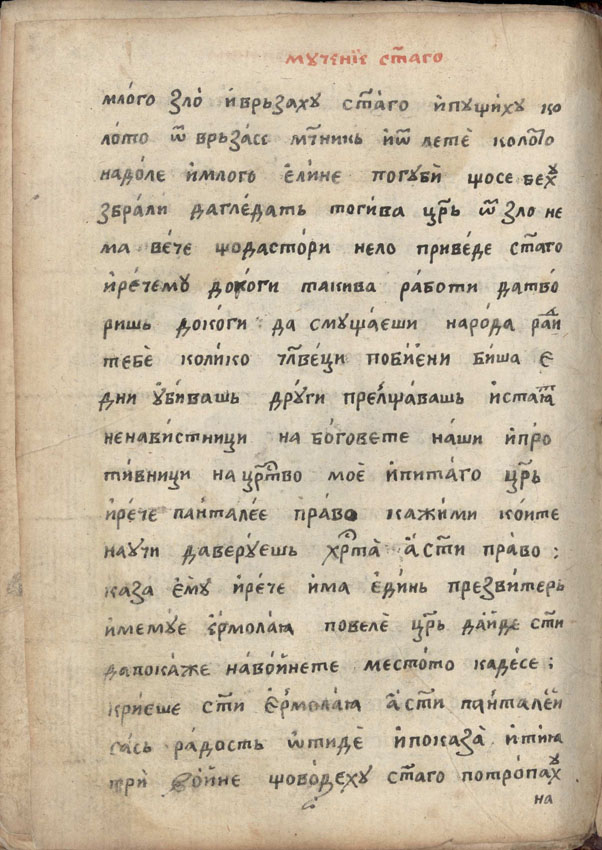 мꙋченїе ст҃аго
мло́го зло̀ и҆врьза́хꙋ ст҃а́го и҆пꙋщи́хꙋ ко
ло́то ѿ врьза́се мч҃никь и҆ѿ летѐ коло́то
надо́ле и҆мло́го е҆́лине погꙋбѝ щосе бехꙋ
збра́ли дагле́дать тоги́ва цр҃ь ѿ зло не
ма ве́че щодастори нело приве́де ст҃аго
и҆ре́чемꙋ доко́ги такива ра́боти датво́
ришь доко́ги да смꙋща́еши наро́да ра́ди
тебѐ коли́ко чл҃веци поби́е́ни би́ша е҆
дни ꙋ҆би́вашь дрꙋ́ги прелща́вашь и҆ста́ѧт
ненави́стници на бо́говете на́ши и҆про́
ти́вници на цр҃тво моѐ и҆пита́го цр҃ь
и҆ре́че панталее пра́во кажи́ми кои́те
наꙋчи даверꙋешь хр҃та̀ а҆́ст҃и пра́во :
каза е҆мꙋ̀ и҆ре́че и҆ма е҆ди́нь презви́терь
и҆мемꙋ́е е҆рмола́ѧ повелѐ цр҃ь да́и́де ст҃и
дапока́же наво́йнете место́то каде́се :
крїеше ст҃и е҆рмола́ѧ а҆ст҃и панталеи
сась ра́дость ѿтидѐ и҆показа̀ и҆тиѧ
трѝ во́йне щово́дехꙋ ст҃аго потропахꙋ
на